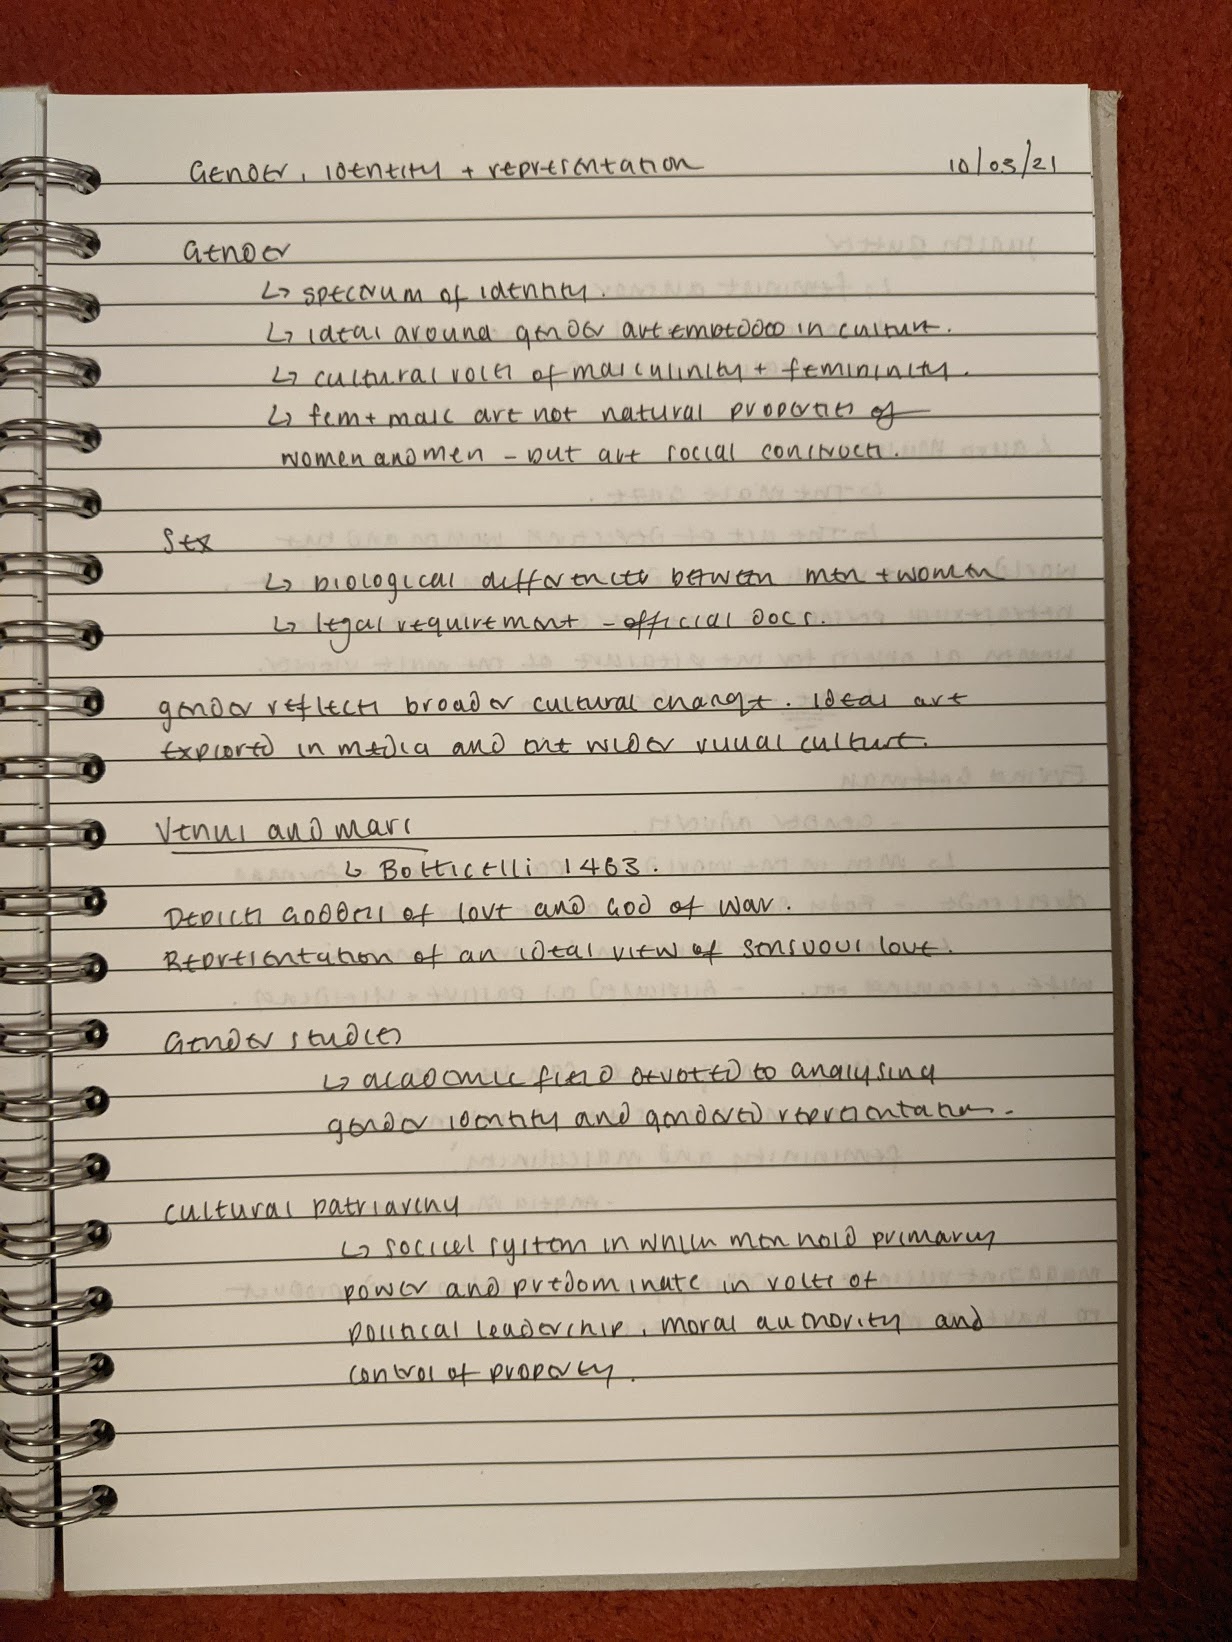 Gender, identity + representation 10/03/21
Gender
↳ spectrum of identity.
↳ ideas around gender are embedded in culture.
↳ cultural roles of masculinity + femininity.
↳ fem + masc are not natural properties of
women and men - but are social constructs.
Sex
↳ biological differences between men + women
↳ legal requirement - official docs.
gender reflects broader cultural change. Ideas are
explored in media and the wider visual culture.
Venus and mars
↳ Botticelli 1483.
Depicts Goddess of love and God of war.
Representation of an ideal view of sensuous love.
Gender studies
↳ academic field devoted to analysing
gender identity and gendered representation.
cultural patriarchy
↳ social system in which men hold primary
power and predominate in roles of
political leadership, moral authority and
control of property.